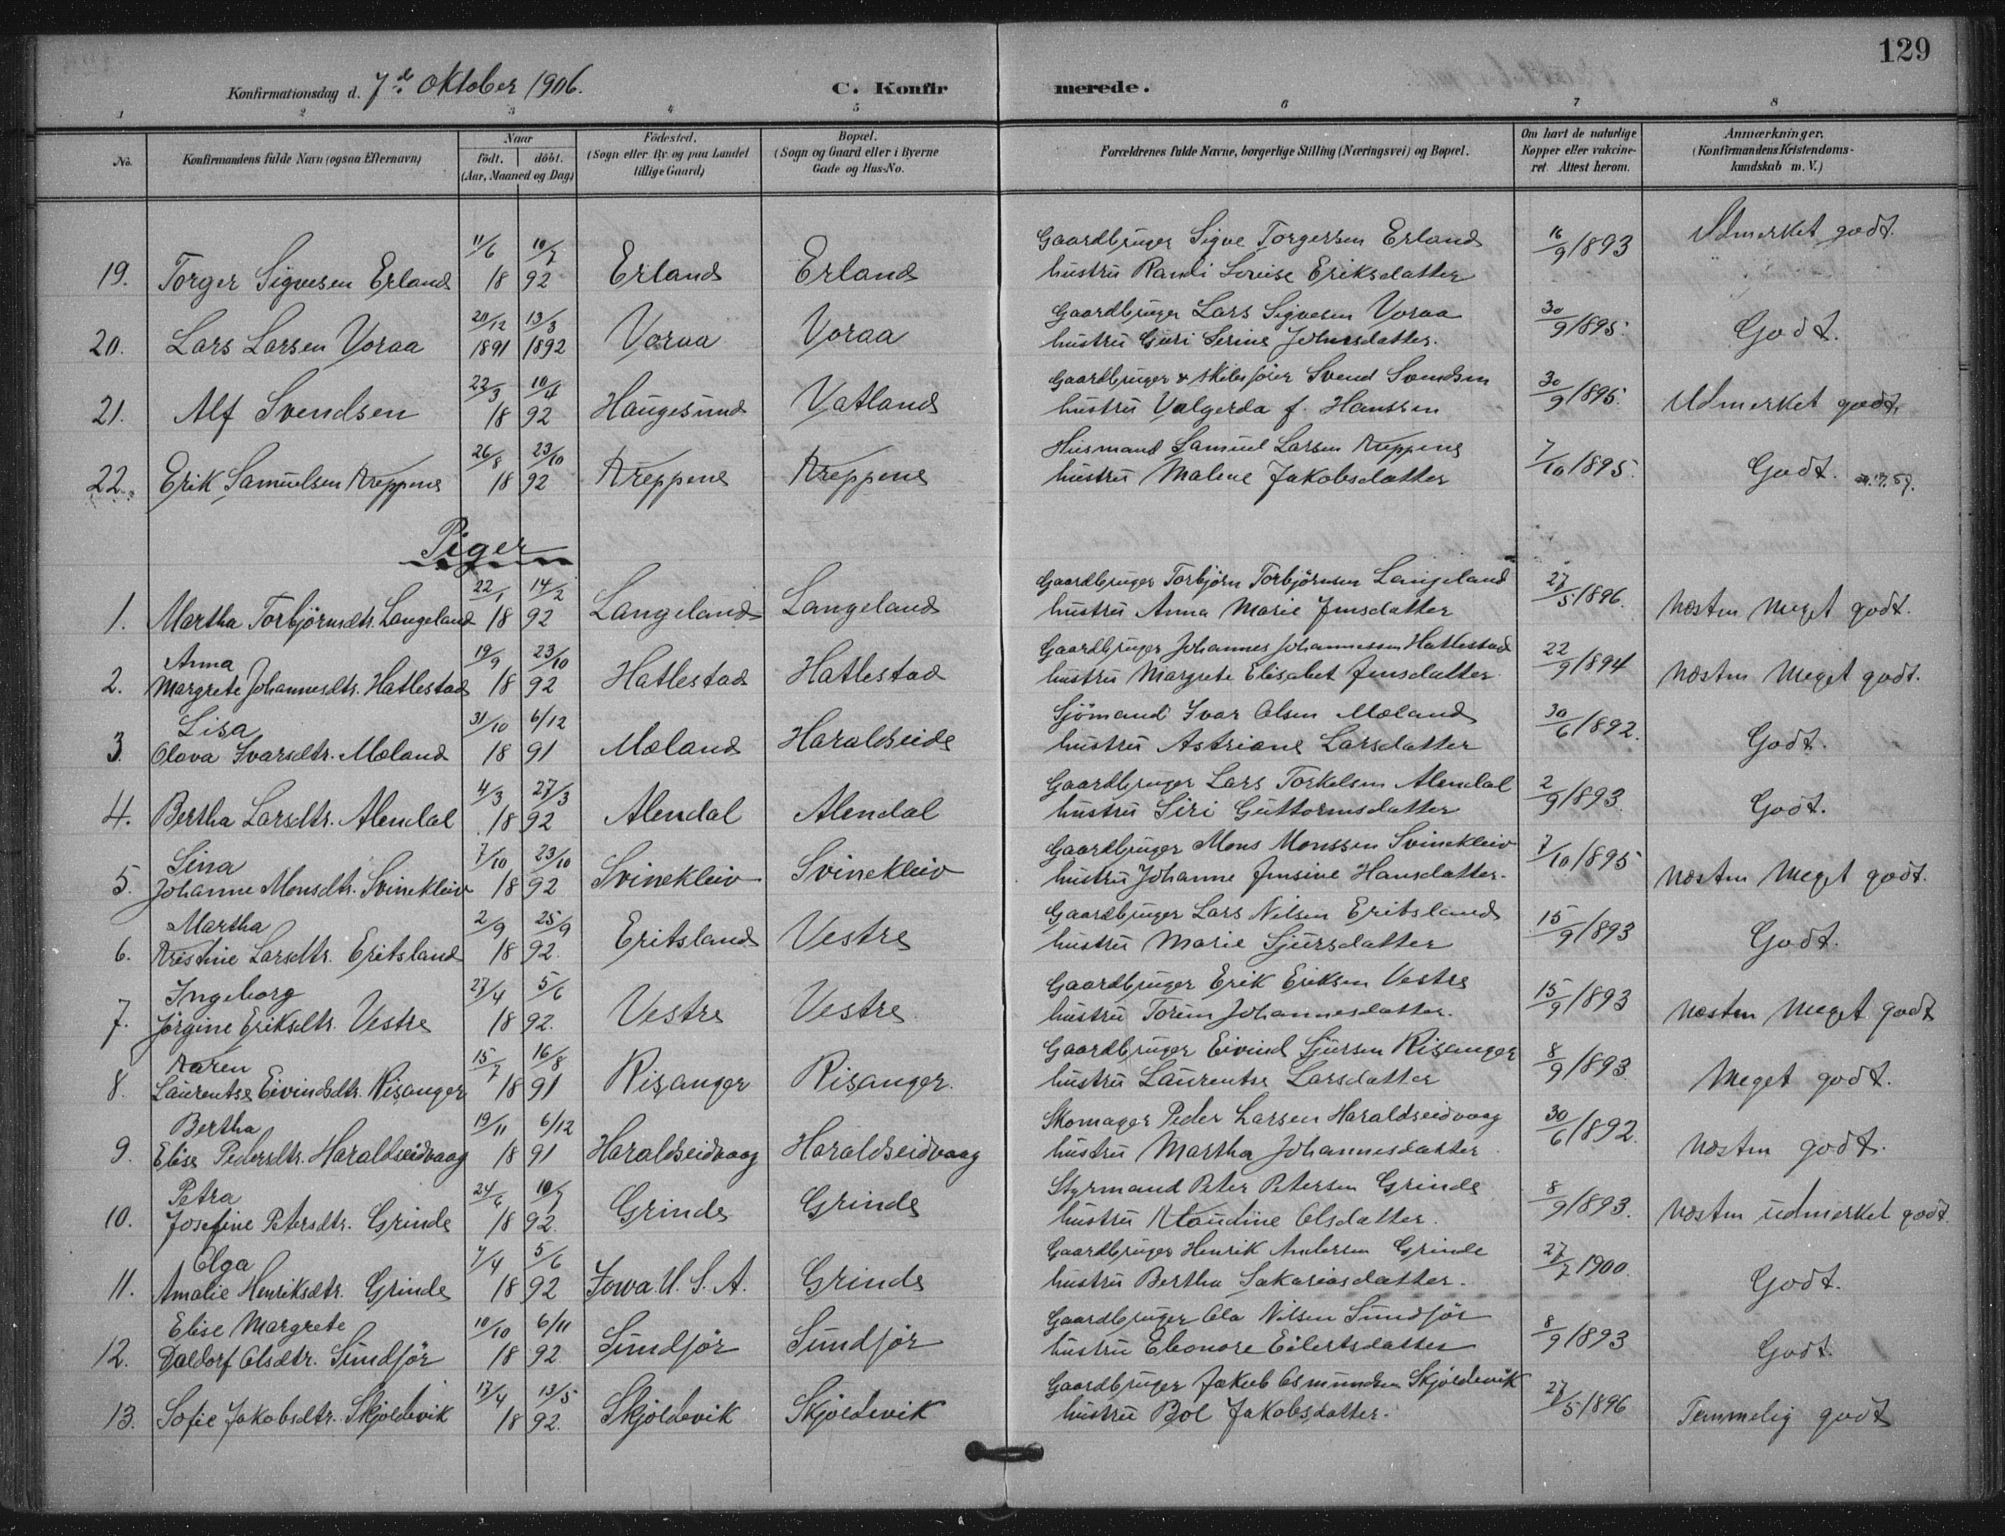 129
Konfirmationsdag d. 7de Oktober 1906. C. Konfir merede.
1 2 3 4 5 6 7 8
No. Konfirmandens fulde Navn (ogsaa Efternavn) Naar födt. döbt. (Aar, Maaned og Dag) Födested. (Sogn eller By og paa Landet tillige Gaard) Bopæl. (Sogn og Gaard eller i Byerne Gade og Hus-No. Forældrenes fulde Navne, borgerlige Stilling (Næringsvei) og Bopæl. Om havt de naturlige Kopper eller vakcineret. Attest herom. Anmærkninger. (Konfirmandens Kristendomskundskab m. V.)
11/6 10/7 Gaardbruger Sigve Torgersen Erland 16/9 1893 Udmerket godt.
19. Torger Sigvesen Erland 18 92 Erland Erland hustru Randi Lovise Eriksdatter
20/12 13/3 Gaardbruger Lars Sigvesen Voraa 30/9 1895
20. Lars Larsen Voraa 1891 1892 Voraa Voraa hustru Guri Serine Johnsdatter. Godt.
22/3 10/4 Gaardbruger & skibsfører Svend Svendsen 30/9 1895
21. Alf Svendsen 18 92 Haugesund Vatland hustru Valgerda f. Hanssen Udmerket godt.
26/8 23/10 Husmand Samuel Larsen Kreppene 7/10 1895.
22. Erik Samuelsen Kreppene 18 92 Kreppene Kreppene hustru Malene Jakobsdatter Godt.
Piger
22/1 14/2 Gaardbruger Torbjørn Torbjørnsen Langeland 27/5 1896.
1. Martha Torbjørnsdtr. Langeland 18 92 Langeland Langeland hustru Anna Marie Jensdatter Næsten Meget godt.
Anna 19/9 23/10 Gaardbruger Johannes Johannessen Hatlestad 22/9 1894
2. Margrete Johannesdtr. Hatlestad 18 92 Hatlestad Hatlestad hustru Margrete Elisabet Jensdatter. Næsten Meget godt.
Lisa 31/10 6/12 Sjömand Ivar Olsen Mæland 30/6 1892.
3. Olava Ivarsdtr. Mæland 18 91 Mæland Haraldseide hustru Astriane Larsdatter Godt.
4/3 27/3 Gaardbruger Lars Torkelsen Alendal 2/9 1893.
4. Bertha Larsdtr. Alendal 18 92 Alendal Alendal hustru Siri Guttormsdatter Godt.
Sina 7/10 23/10 Gaardbruger Mons Monssen Svinekleiv 7/10 1895
5. Johanne Monsdtr. Svinekleiv 18 92 Svinekleiv Svinekleiv hustru Johanne Jensine Hansdatter. Næsten Meget godt.
Martha 2/9 25/9 Gaardbruger Lars Nilsen Eritsland 15/9 1893
6. Kristine Larsdtr. Eritsland 18 92. Eritsland Vestre hustru Marie Sjursdatter Godt.
Ingeborg 27/4 5/6 Gaardbruger Erik Eriksen Vestre 15/9 1893
7. Jørgine Eriksdtr. Vestre 18 92. Vestre Vestre hustru Torine Johannesdatter. Næsten Meget godt
Karen 15/7 16/8 Gaardbruger Eivind Sjursen Risanger 8/9 1893.
8. Laurentse Eivindsdtr. Risanger 18 91 Risanger Risanger. hustru Laurentse Larsdatter Meget godt.
Bertha 19/11 6/12 Skomager Peder Larsen Haraldseidvaag 30/6 1892.
9. Elise Pedersdtr. Haraldseidvaag 18 91 Haraldseidvaag Haraldseidvaag hustru Martha Johannesdatter Næsten godt.
Petra 24/6 10/7 Styrmand Peter Petersen Grinde 8/9 1893.
10. Josefine Petersdtr. Grinde 18 92. Grinde Grinde hustru Klaudine Olsdatter. Næsten udmerket godt.
Olga 7/4 5/6 Gaardbruger Henrik Andersen Grinde 27/7 1900.
11. Amalie Henriksdtr. Grinde 18 92 Iowa U. S. A. Grinde hustru Bertha Sakariasdatter. Godt.
Elise Margrete 10/10 6/11 Gaardbruger Ola Nilsen Sundför 8/9 1893
12. Daldorf Olsdtr. Sundför 18 92. Sundför Sundför hustru Eleonore Eilertsdatter Godt.
17/4 13/5 Gaardbruger Jakob Osmundsen Skjoldevik 27/5 1896
13. Sofie Jakobsdtr. Skjoldevik 18 92. Skjoldevik Skjoldevik hustru Bol Jakobsdatter. Temmelig godt